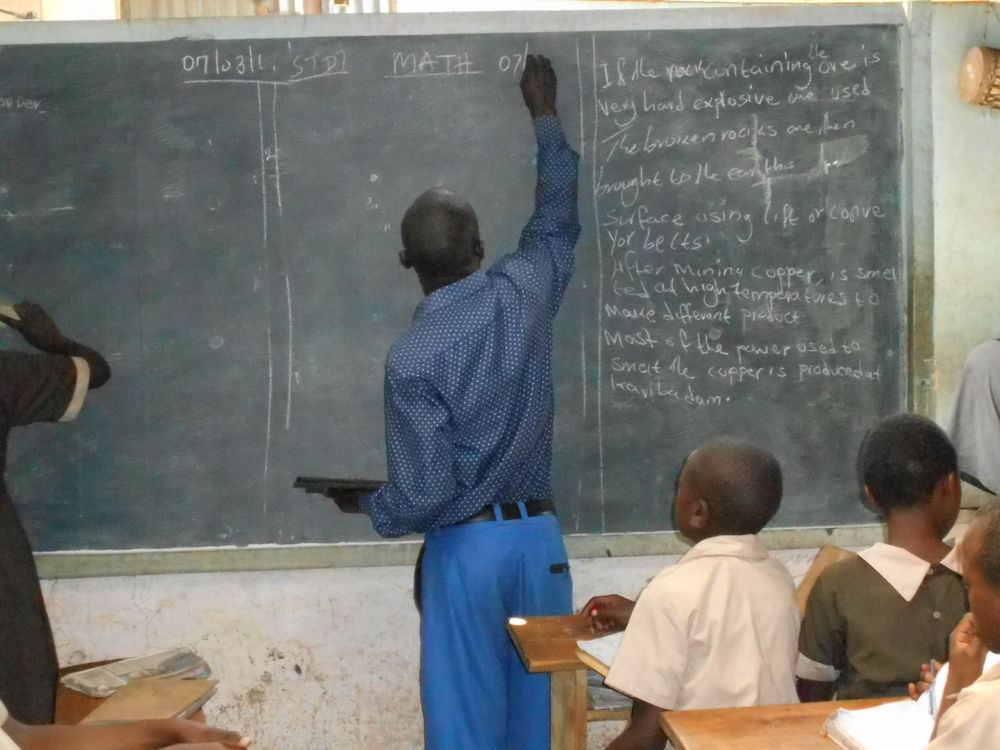 07/03/11 STD7 MATH 07/
the
If the rock containing Ore is
very hard explosive are used
The broken rocks are then
brought to the earths
Surface using lift or conve
yor belts.
After mining copper, is smel
ted at high temperatures to
make different product.
Most of the power used to
smelt the copper is produced at
kariba dam.